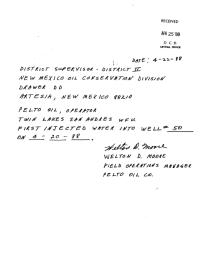 RECEIVED
APR 25 '88
O. C. D.
ARTESIA, OFFICE
DATE: 4-22-88
DISTRICT SUPERVISOR - DISTRICT II
NEW MEXICO OIL CONSERVATION DIVISION
DRAWER DD
ARTESIA, NEW MEXICO 88210
PELTO OIL, OPERATOR
TWIN LAKES SAN ANDRES WFU
FIRST INJECTED WATER INTO WELL # 50
ON 4-20-88.
Welton D. Moore
WELTON D. MOORE
FIELD OPERATIONS MANAGER
PELTO OIL CO.